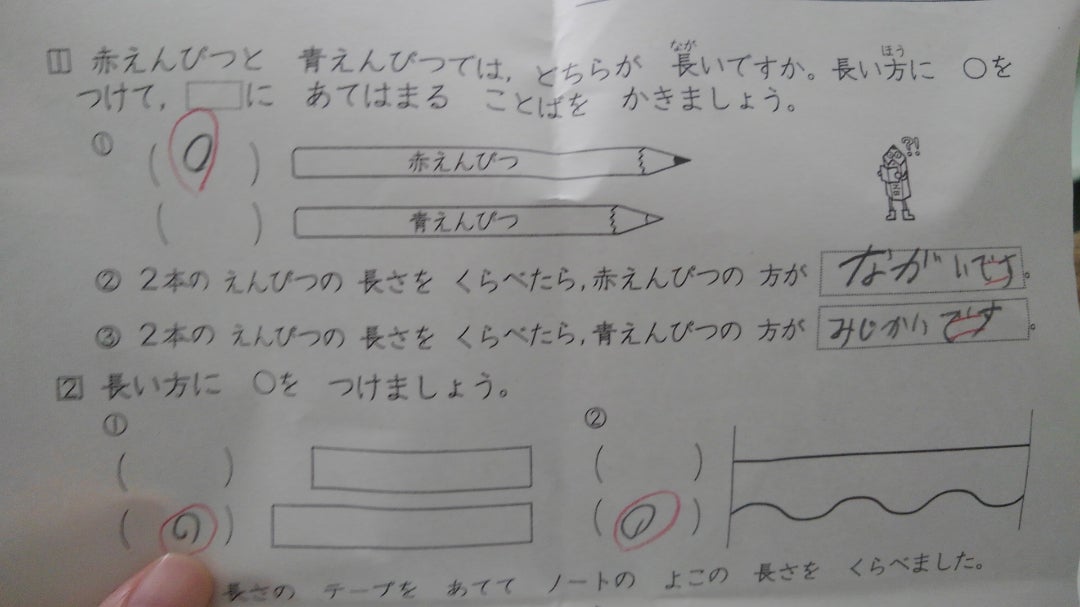 1 赤えんぴつと 青えんぴつでは,どちらが 長いですか。長い方に ○を
なが ほう
つけて,□に あてはまる ことばを かきましょう。
① ( ○ ) 赤えんぴつ
?!
( ) 青えんぴつ
② 2本の えんぴつの 長さを くらべたら,赤えんぴつの 方が ながいです。
③ 2本の えんぴつの 長さを くらべたら,青えんぴつの 方が みじかいです。
2 長い方に ○を つけましょう。
① ②
( ) ( )
( ○ ) ( ○ )
長さの テープを あてて ノートの よこの 長さを くらべました。